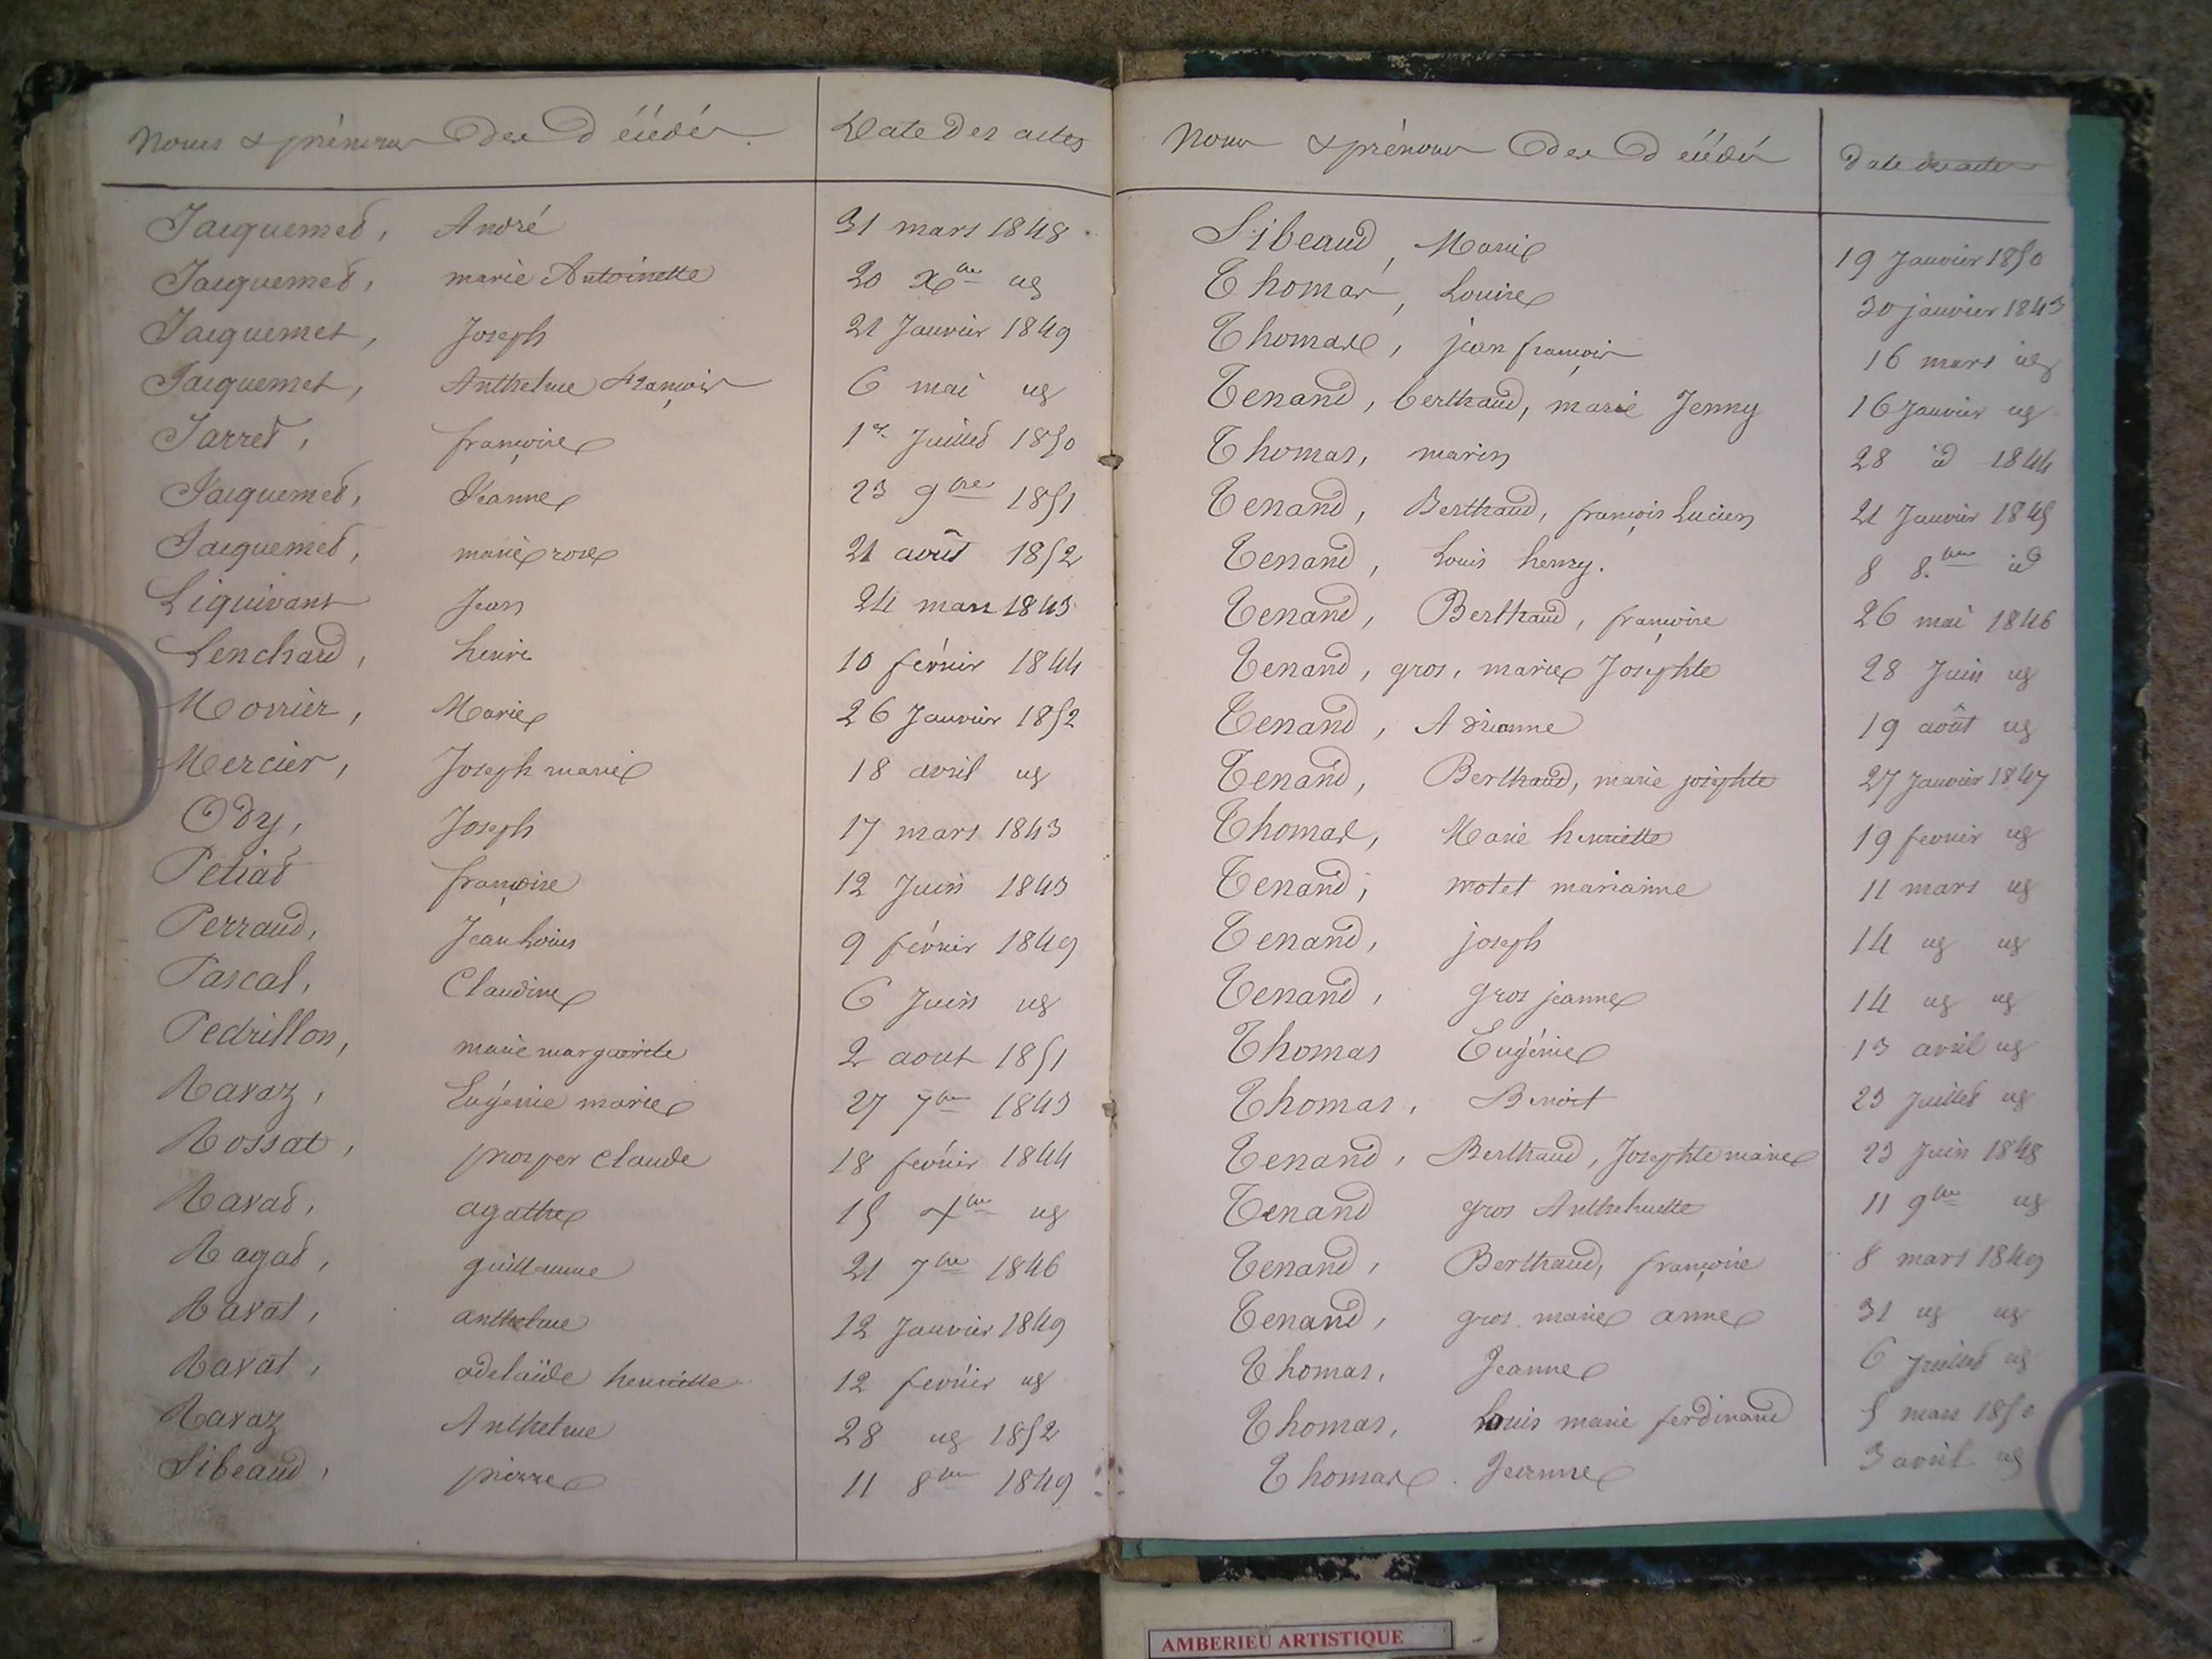 Noms & prénoms Des Décédés
Date Des actes
Jacquemet, André 31 mars 1848
Jacquemet, marie Antoinette 20 Xbre ug
Jacquemet, Joseph 21 Janvier 1849
Jacquemet, Anthelme François 6 mai ug
Jarret, françoise 1er Juillet 1850
Jacquemet, Jeanne 23 9bre 1851
Jacquemet, marie rose 21 août 1852
Liquivant Jean 24 mars 1843
Lenchard, henri 10 février 1844
Marie 26 Janvier 1852
Mercier, Joseph marie 18 avril ug
Ody, Joseph 17 mars 1843
Petiat françoise 12 Juin 1843
Perraud, Jean Louis 9 février 1849
Pascal, Claudine 6 Juin ug
Pedrillon, marie margarite 2 aout 1851
Ravaz, Eugénie marie 27 7bre 1843
Rossat, prosper Claude 18 février 1844
Ravat, agathe 15 Xbre ug
Ragat, guillaume 21 7bre 1846
Ravat, anthelme 12 Janvier 1849
Ravat, adelaïde henriette 12 février ug
Ravaz Anthelme 28 ug 1852
Sibeaud, pierre 11 8bre 1849
Noms & prénoms Des Décédés
Date des actes
Sibeaud, Marie 19 Janvier 1850
Thomas, Louise 30 janvier 1843
Thomas, jean françois 16 mars ug
Tenand, berthaud, marie Jenny 16 Janvier ug
Thomas, marin 28 id 1844
Tenand, Berthaud, françois Lucien 21 Janvier 1845
Tenand, Louis henry. 8 8.bre id
Tenand, Berthaud, françoise 26 mai 1846
Tenand, gros, marie Josephte 28 Juin ug
Tenand, Adrianne 19 août ug
Tenand, Berthaud, marie josephte 27 Janvier 1847
Thomas, Marie henriette 19 fevrier ug
Tenand, motet marianne 11 mars ug
Tenand, joseph 14 ug ug
Tenand, gros jeanne 14 ug ug
Thomas Eugénie 13 avril ug
Thomas, Benoit 23 Juillet ug
Tenand, Berthaud, Josephte marie 23 Juin 1848
Tenand gros Anthelmette 11 9bre ug
Tenand, Berthaud, françoise 8 mars 1849
Tenand, gros marie anne 31 ug ug
Thomas, Jeanne 6 juillet ug
Thomas, Louis marie ferdinand 5 mars 1850
Thomas. Jeanne 3 avril ug
AMBERIEU ARTISTIQUE